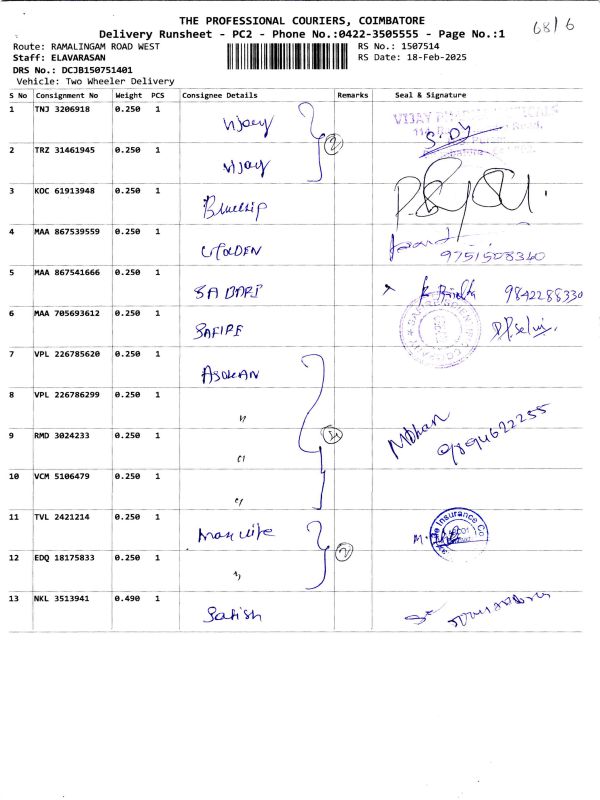 THE PROFESSIONAL COURIERS, COIMBATORE
68/6
Delivery Runsheet - PC2 - Phone No.:0422-3505555 - Page No.:1
Route: RAMALINGAM ROAD WEST RS No.: 1507514
Staff: ELAVARASAN RS Date: 18-Feb-2025
DRS No.: DCJB150751401
Vehicle: Two Wheeler Delivery
S No Consignment No Weight PCS Consignee Details Remarks Seal & Signature
1 TNJ 3206918 0.250 1 Vijay
2 TRZ 31461945 0.250 1 Vijay 2
3 KOC 61913948 0.250 1
4 MAA 867539559 0.250 1 GOLDEN 9751508340
5 MAA 867541666 0.250 1 9842288330
6 MAA 705693612 0.250 1 SAFIRE
7 VPL 226785620 0.250 1 ASOKAN
8 VPL 226786299 0.250 1 "
9 RMD 3024233 0.250 1 " 4 Mohan 9894622255
10 VCM 5106479 0.250 1 "
11 TVL 2421214 0.250 1 Insurance Co
12 EDQ 18175833 0.250 1 " 2
13 NKL 3513941 0.490 1 Satish